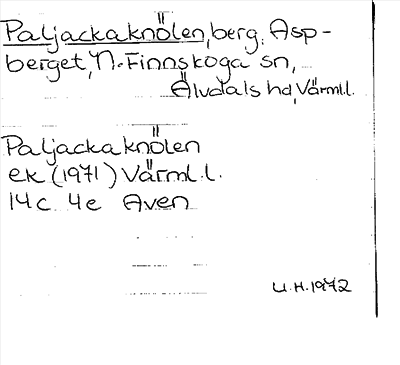 Paljackaknölen, berg, Asp-
berget, N. Finnskoga sn,
Älvdals hd, Värml.l.
Paljackaknölen
ek (1971) Värml.l.
14c 4e Aven
U.H. 1972